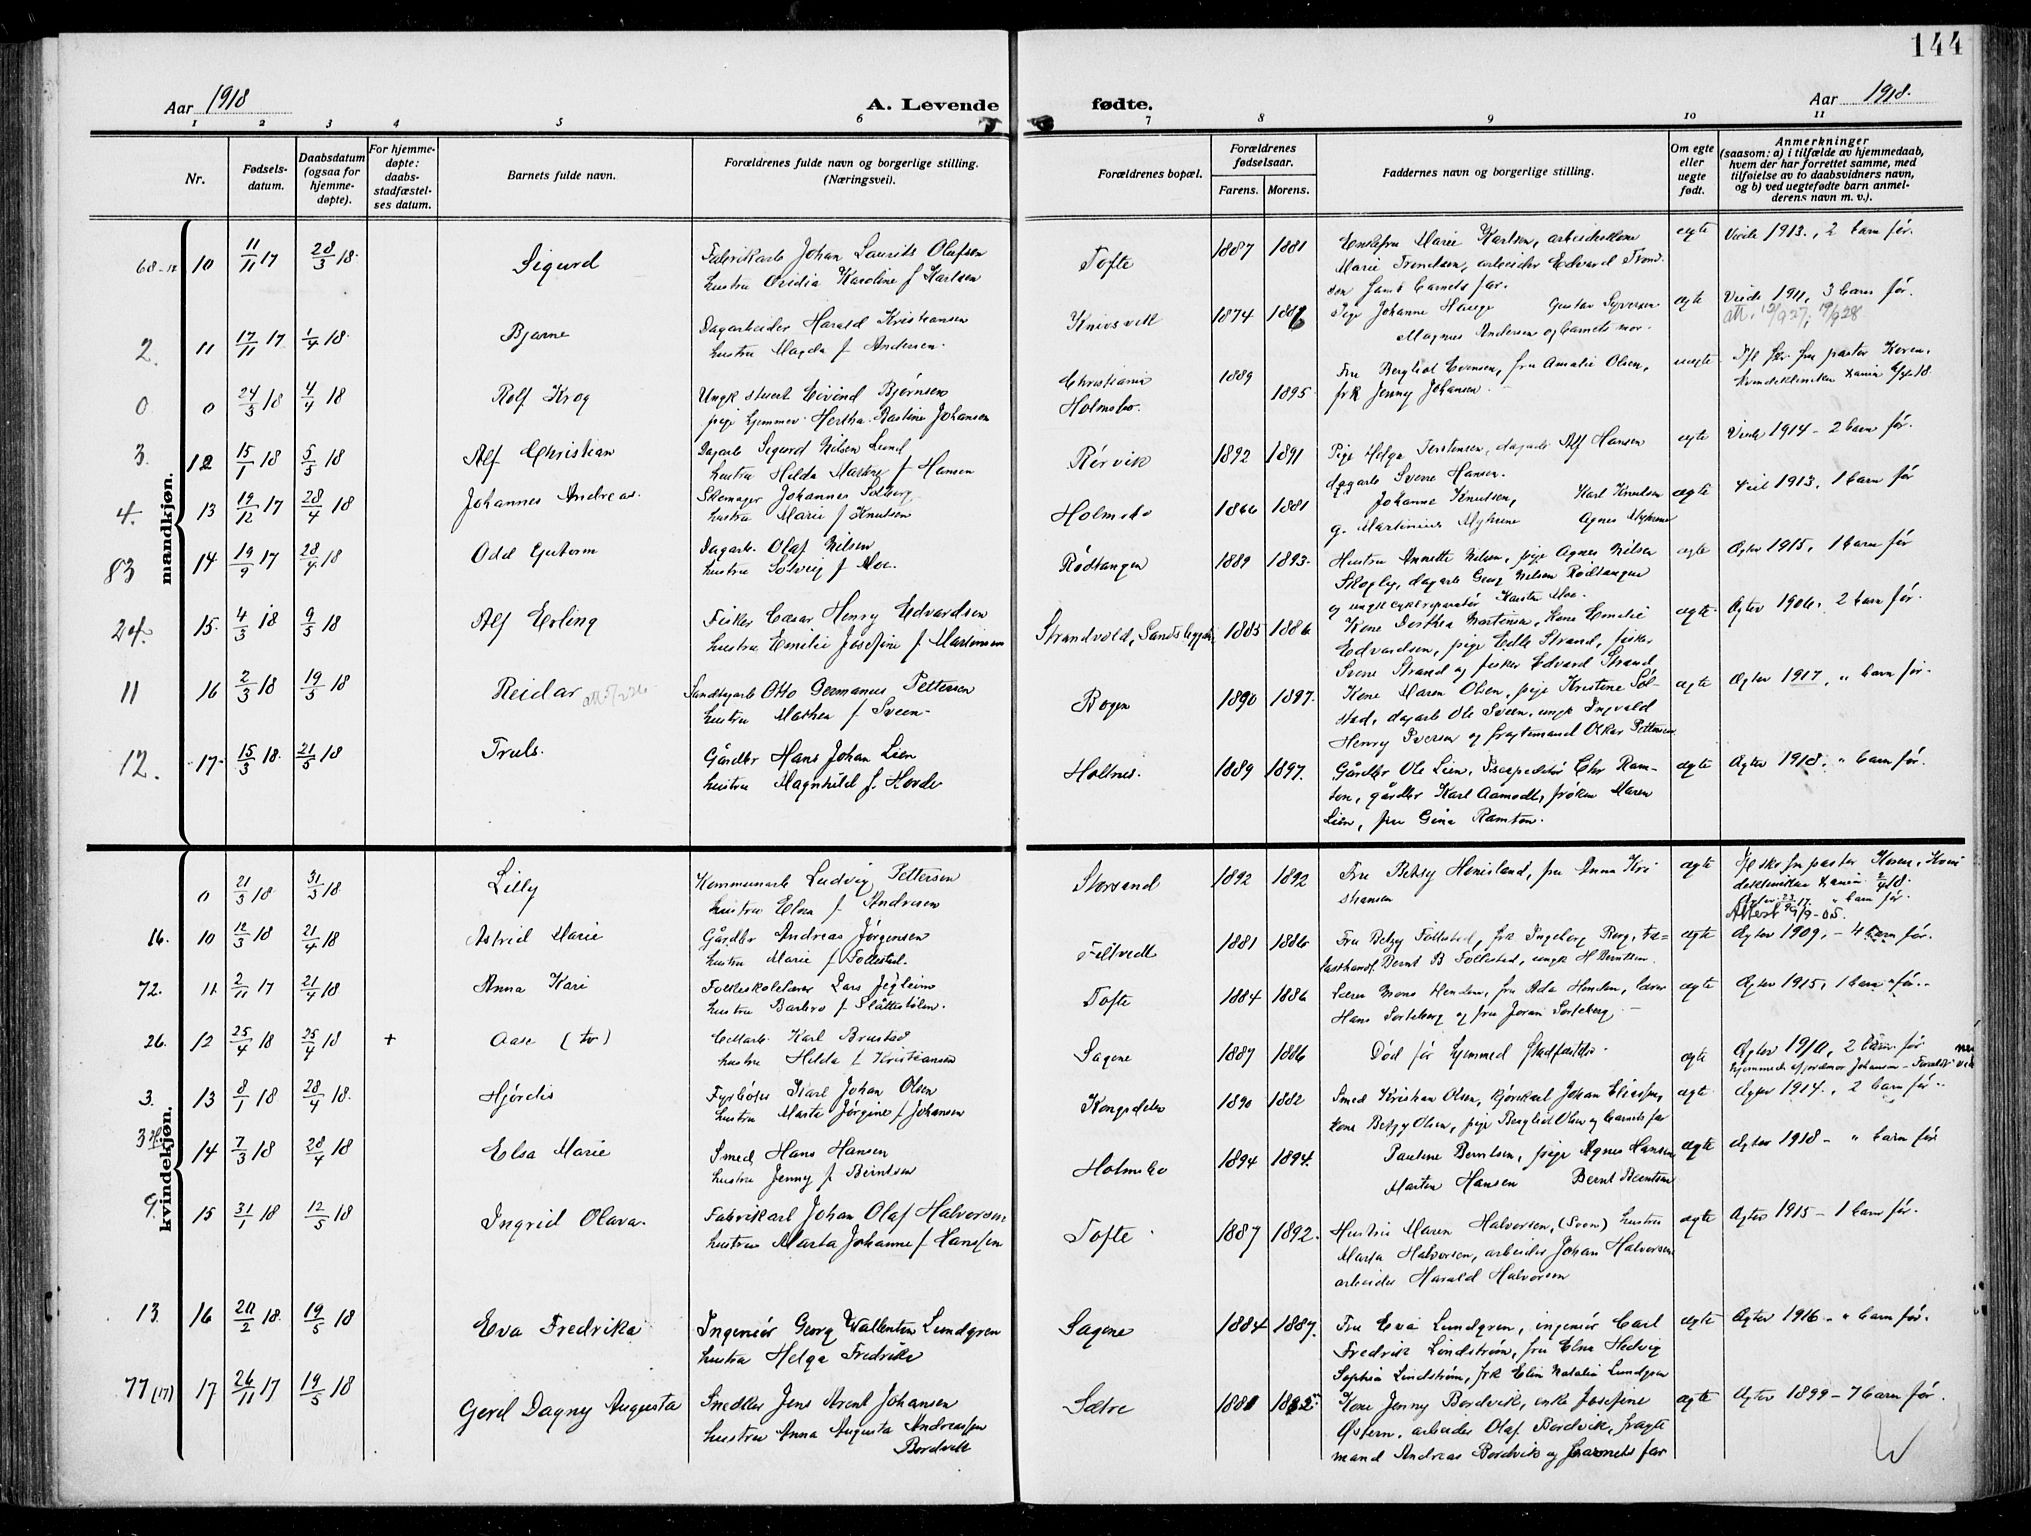 144
Aar 1918
A. Levende
fødte.
Aar 1918.
1 2 3 4 5 6 7 8 9 10 11
Nr.
Fødsels-
datum.
Daabsdatum
(ogsaa for
hjemme-
døpte).
For hjemme-
døpte:
daabs-
stadfæstel-
ses datum.
Barnets fulde navn.
Forældrenes fulde navn og borgerlige stilling.
(Næringsvei).
Forældrenes bopæl.
Forældrenes
fødselsaar.
Farens. Morens.
Faddernes navn og borgerlige stilling.
Om egte
eller
uegte
født.
Anmerkninger
(saasom: a) i tilfælde av hjemmedaab,
hvem der har forrettet samme, med
tilføielse av to daabsvidners navn,
og b) ved uegtefødte barn anmel-
derens navn m. v.).
mandkjøn.
10 11/11 17 28/3 18. Sigurd Fabrikarb Johan Laurits Olafsen
hustru Ovidia Karoline f Karlsen
Tofte 1887 1881 Enkefru Marie Karlsen, arbeiderkone
Marie Trondsen, arbeider Edvard Trond-
sen samt barnets far.
egte Viede 1913., 2 barn før.
2. 11 17/11 17 1/4 18. Bjarne Dagarbeider Harald Kristiansen
hustru Magda f Andersen.
Knivsvik 1874 1886 Pige Johanne Hauge Gustav Syversen
Magnus Andersen og barnets mor.
egte Viede 1911, 3 barn før.
att. 13/9 27, 19/9 28
0. 0 24/3 18 4/4 18 Rolf Krog Ungk stuert Eivind Bjørnsen
pige hjemmev. Hertha Bastine Johansen
Christiania
Holmsbo. 1889 1895 Fru Bergliot Evensen, fru Amalie Olsen,
frk Jenny Johansen
uegte Ifl skr. fra pastor Koren,
Kvindeklinikken Xania 6/4 18.
3. 12 15/1 18 5/5 18 Alf Christian Dagarb Sigurd Nilsen Lund
hustru Hilda Marthine f Hansen
Rørvik 1892 1891 Pige Helga Torstensen, dagarb Alf Hansen
dagarb Svenne Hansen.
egte Viede 1914 - 2 barn før.
4. 13 19/12 17 28/4 18 Johannes Andreas. Skomager Johannes Solberg
hustru Marie f Knutsen
Holmsbo 1866 1881 Johanne Knutsen, Karl Knutsen
g. Martinius Myhrene Agnes Myhrene
egte Viet 1913, 1 barn før
83 14 19/9 17 28/4 18 Odd Guttorm Dagarb. Olaf Nilsen
hustru Solveig f Moe.
Rødtangen 1889 1893. Hustru Annette Nilsen, pige Agnes Nilsen
Skogby, dagarb Georg Nilsen Rødtangen
og ungk cykelreparatør Karsten Moe.
egte Egtev 1915, 1 barn før
24. 15. 4/3 18 9/5 18 Alf Erling Fisker Cæsar Henry Edvardsen
hustru Emilie Josefine f Martinsen
Strandvold, 1885 1886 Kone Dorthea Martinsen, Kone Emilie
Edvardsen, pige Edle Strand, fisker
Svene Strand og fisker Edvard Strand
egte Egtev 1906. 2 barn før.
11 16 2/3 18 19/5 18 Reidar Otto Germanus Pettersen
hustru Mathea f Sveen
Bogen 1890 1897. Kone Maren Olsen, pige Kristine Sol-
stad, dagarb Ole Sveen, ungk Ingvald
Henry Iversen og fragtemand Oskar Pettersen
egte Egtev 1917, " barn før.
12. 17. 15/3 18. 21/5 18 Truls. Gårdbr Hans Johan Lien
hustru Magnhild f. Horde
Holtnes. 1889 1897. Gårdbr Ole Lien, Expeditør Chr Ram-
ton, gårdbr Karl Aamodt, frøken Maren
Lien, fru Gina Ramton.
egte Egtev 1918. " barn før.
kvindekjøn.
0 21/3 18 31/3 18 Lilly Kommunearb Ludvig Pettersen
hustru Elsa f Andresen
Storsand 1892 1892 Fru Betsy Hemsland, fru Anna Kri
stiansen
egte Ifl skr. fra pastor Koren, Kvin
deklinikken Xania 2/4 18.
Egtev 17. " barn før.
16. 10 12/3 18 21/4 18 Astrid Marie Gårdbr Andreas Jørgensen
hustru Marie f Tollestad.
Filtvedt 1881 1886 Fru Betzy Tollestad, frk Ingeborg Berg, træ-
lasthandl. Bernt B Tollestad, ungk H Berntsen.
egte Egtev 1909, - 4 barn før.
72. 11. 2/11 17 21/4 18 Anna Kari Folkeskolelærer Lars Jegleim
hustru Barbro f Slåttestølen.
Tofte 1884 1886 Lærer Mons Henden, fru Ada Henden, lærer
Hans Sorteberg og fru Joran Sorteberg.
egte Egtev 1915, 1 barn før.
26. 12 25/4 18 25/4 18 + Aase (tv) Cellarb Karl Brustad
hustru Hilda f Kristiansen
Sagene 1887 1886 Død før hjemmed stadfæstes.
egte Egtev 1910, 2 barn før
hjemmed. v/jordmor Johansen -
3. 13 8/1 18 28/4 18. Hjørdis Fyrbøter Karl Johan Olsen
hustru Marte Jørgine f Johansen
Kongsdelen 1890 1882 Smed Kristian Olsen, Johan Eliassen,
kone Betzy Olsen, pige Bergliot Olsen og barnets far
egte. Egtev 1914., 2 barn før.
14 7/3 18 28/4 18 Elsa Marie Smed Hans Hansen
hustru Jenny f Berntsen
Holmsbo 1894 1894. Pauline Berntsen, pige Agnes Hansen
Marten Hansen Bernt Berntsen
egte Egtev 1918 - " barn før
9. 15 31/1 18 12/5 18 Ingrid Olava. Fabrikarb Johan Olaf Halvorsen
hustru Marta Johanne f Hanssen
Tofte. 1887 1892. Hustru Maren Halvorsen, (Sveen) hustru
Marta Halvorsen, arbeider Johan Halvorsen
arbeider Harald Halvorsen
egte Egtev 1915 - 1 barn før.
13. 16 20/2 18. 19/5 18 Eva Fredrika Ingeniør Georg Wallentin Lundgren
hustru Helga Fredrika
Sagene 1884 1887. Fru Eva Lundgren, ingeniør Carl
Fredrik Lindstrøm, fru Elna Hedvig
Sophia Lindstrøm, frk Elin Natalia Lundgren
egte Egtev 1916., " barn før.
77 (17) 17 26/11 17 19/5 18 Gerd Dagny Augusta Snedker Jens Arent Johansen
hustru Anna Augusta Andreassen
Bordvik
Sætre 1881 1882 Kone Jenny Bordvik, enke Josefine
Østern, arbeider Olaf Bordvik, fragte
mand Andreas Bordvik og barnets far
egte Egtev 1899 - 7 barn før.